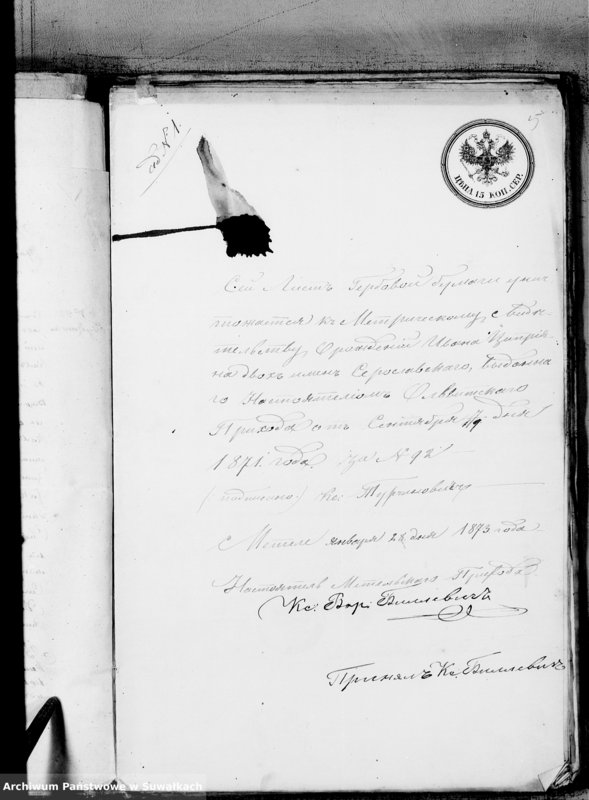 5
ad № 1.
ЦѢНА 15 КОП. СЕР.
Сей Листъ Гербовой бумаги унич-
тожается къ Метрическому свидѣ-
тельству о рожденіи Ивана
на двохъ именъ Серославского, выданна
го Настоятелемъ Олвитского
Прихода отъ Сентября 7/19 дня
1871 года за № 92
(подписано) Кс:
с Метеле января 28 дня 1873 года
Настоятель Метельского Прихода
Кс:
Принялъ Кс.
Archiwum Państwowe w Suwałkach